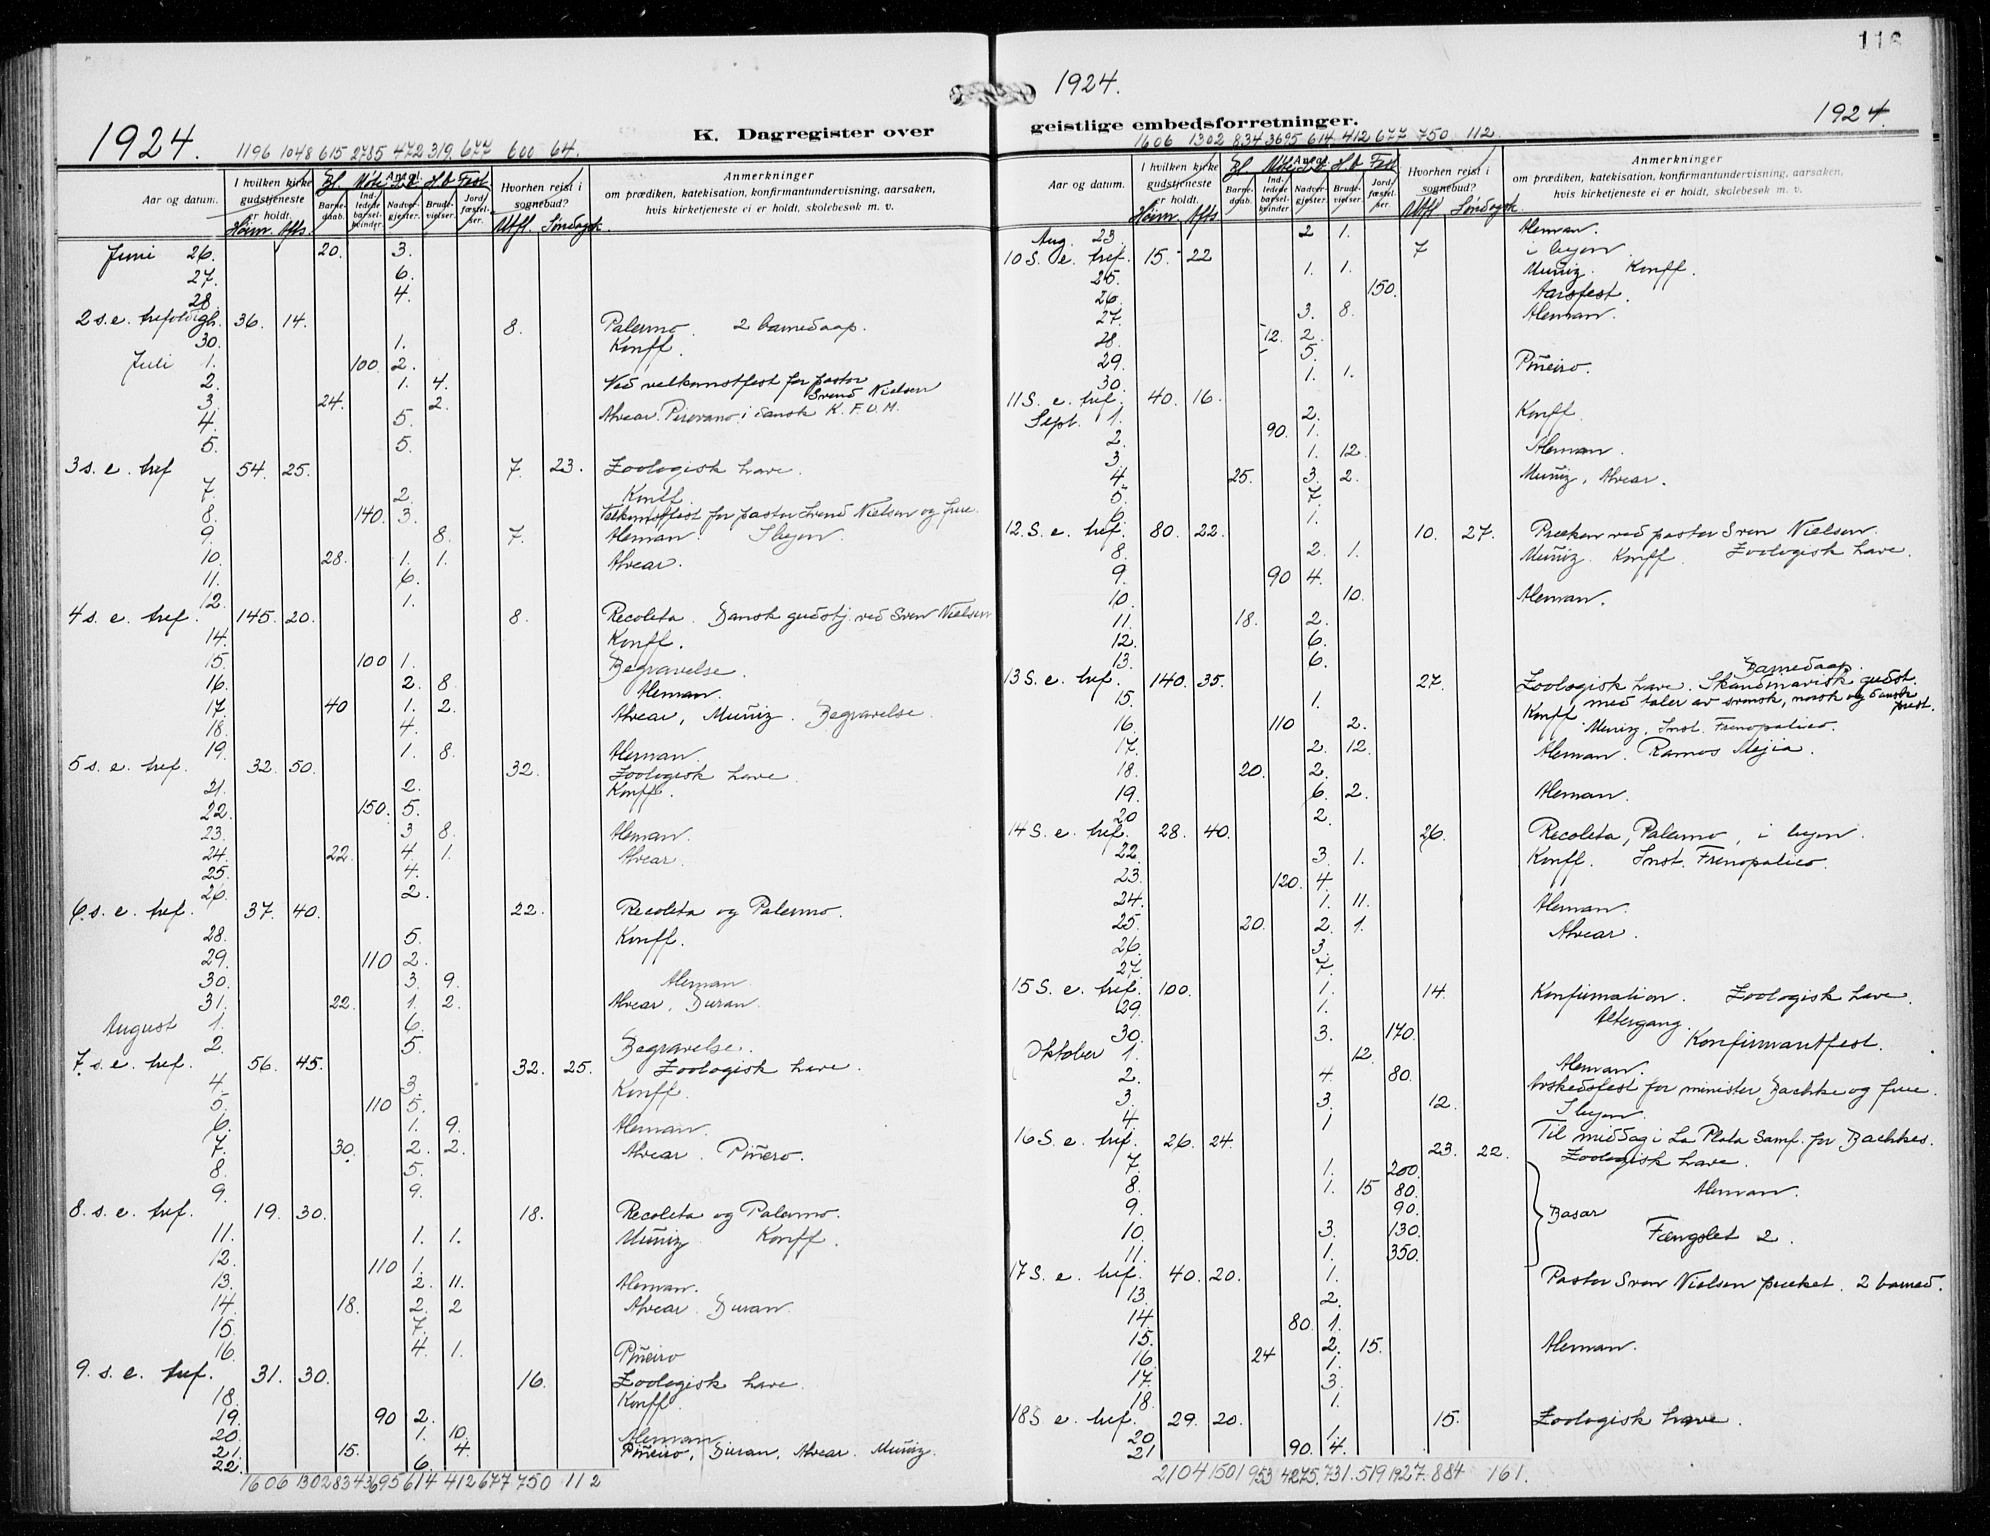 116
1924.
1924.
K. Dagregister over
1196 1048 615 2785 472 319. 677 600 64.
Aar og datum.
I hvilken kirke gudstjeneste er holdt.
Høim. Afts.
Hvorhen reist i sognebud?
Utfl. Søndagsk.
Anmerkninger
om prædiken, katekisation, konfirmantundervisning, aarsaken,
hvis kirketjeneste ei er holdt, skolebesøk m. v.
Juni 26. 20. 3.
27. 6.
28. 4.
2 s. e. trefoldigh. 36. 14. 8. Palermo. 2 barnedaap.
30. 1. Konff.
Juli 1. 100 2.
2. 1. 4. Ved velkomstfest for pastor Svend Nielsen
3. 24. 2. Alvear. Pirovano. i dansk K.F.U.M.
4. 5.
5. 5.
3 s. e. tref 54. 25. 7. 23. Zoologisk have.
7. 2. Konff.
8. 140. 3. Velkomstfest for pastor Svend Nielsen og frue.
9. 8. 7. Aleman. I byen.
10. 28. 1. 1. Alvear.
11. 6.
12. 1.
4 s. e. tref. 145. 20. 8. Recoleta. Dansk gudstj. ved Sven Nielsen
14. Konff.
15. 100 1. Begravelse.
16. 2. 8. Aleman.
17. 40 1. 2. Alvear, Muñiz. Begravelse.
18. 4.
19. 1. 8. Aleman.
5 s. e. tref. 32. 50. 32. Zoologisk have.
21. 2. Konff.
22. 150. 5.
23. 3 8. Aleman.
24. 22. 4. 1. Alvear.
25. 4.
26. 2.
6. s. e. tref. 37. 40. 22. Recoleta og Palermo.
28. 5. Konff.
29. 110 2.
30. 3. 9. Aleman.
31. 22. 1. 2. Alvear, Duran.
August 1. 6.
2. 5. Begravelse.
7. s. e. tref. 56. 45. 32. 25. Zoologisk have.
4. 3. Konff.
5. 110 5.
6. 1. 9. Aleman.
7. 30. 2. 2. Alvear. Piñero.
8. 5.
9. 9.
8. s. e. tref. 19. 30. 18. Recoleta og Palermo.
11. 1. 1. Muñiz Konff.
12. 110 1.
13. 2. 11. Aleman.
14. 18. 2. 2 Alvear. Duran.
15. 7.
16. 4. 1. Piñeiro
9. s. e. tref. 31. 30. 16. Zoologisk have.
18. Konff.
19. 90 2.
20. 1. 10. Aleman.
21. 15. 4. Piñeiro, Duran, Alvear. Muñiz.
22. 6.
1606 1302 834 3695 614 412 677 750 112
1924.
geistlige embedsforretninger.
1606 1302 834 3695 614. 412 677 750 112.
Aar og datum.
I hvilken kirke gudstjeneste er holdt.
Høim. Afts
Hvorhen reist i sognebud?
Utfl Søndagsk.
Anmerkninger
om prædiken, katekisation, konfirmantundervisning, aarsaken,
hvis kirketjeneste ei er holdt, skolebesøk m. v.
Aug. 23. 2 1. Aleman.
10 S. e. tref. 15. 22 7 i byen.
25. 1. 1. Muñiz. Konff.
26. 150. Aarsfest.
27. 3. 8. Aleman.
28. 12. 2.
29. 5. Piñeiro.
30. 1. 1.
11 S. e. tref. 40. 16.
Sept. 1. 2. Konff.
2. 90. 1.
3. 1. 12. Aleman.
4. 25. 3. 2. Muñiz, Alvear.
5. 7.
6. 1.
12. S. e. tref. 80. 22. 10. 27. Præken ved pastor Sven Nielsen.
8. 2. 1. Muñiz Konff Zoologisk have.
9. 90 4.
10. 10. Aleman.
11. 18. 2.
12. 6.
13. 6. Barnedaap.
13 S. e. tref. 140. 35. 27. Zoologisk have. Skandinavisk gudst.
15. 1. Konff. med taler av svensk, norsk og dansk prest.
16. 110 2. Muniz, Inst. Frenopatico.
17. 2. 12. Aleman. Ramos Mejia.
18. 20. 2.
19. 6. 2. Aleman.
20 2.
14 S. e. tref. 28. 40. 26. Recoleta, Palermo, i byen.
22. 3. 1. Konff. Inst. Frenopatico.
23. 120. 4.
24. 1. 11. Aleman.
25. 20. 2. 1. Alvear.
26. 3.
27. 7.
15 S. e. tref. 100. 1. 14. Konfirmation. Zoologisk have.
29. 1. Altergang.
30. 3. 170. Konfirmantfest.
Oktober 1. 12. Aleman.
2. 4. 80. Avskedsfest for minister Bachke og frue.
3. 3. 12. I byen.
4. 1
16 S. e. tref. 26. 24. 23. 22. Til middag i La Plata Samf. for Bachkes.
Zoologisk have.
7. 1. 200.
8. 1. 15 80. Aleman.
9. 90. Basar
10. 3. 130. Fængslet 2.
11. 1. 350.
17 S. e. tref. 40. 20. 1. Pastor Sven Nielsen præket. 2 barned.
13. 2.
14. 80. 1.
15. 2. 15. Aleman.
16. 24 1.
17. 3.
18. 1.
18 S e. tref. 29. 20. 15. Zoologisk have.
20 1.
21 90. 4.
2104 1501 953 4275. 731. 519 1927. 884 161.